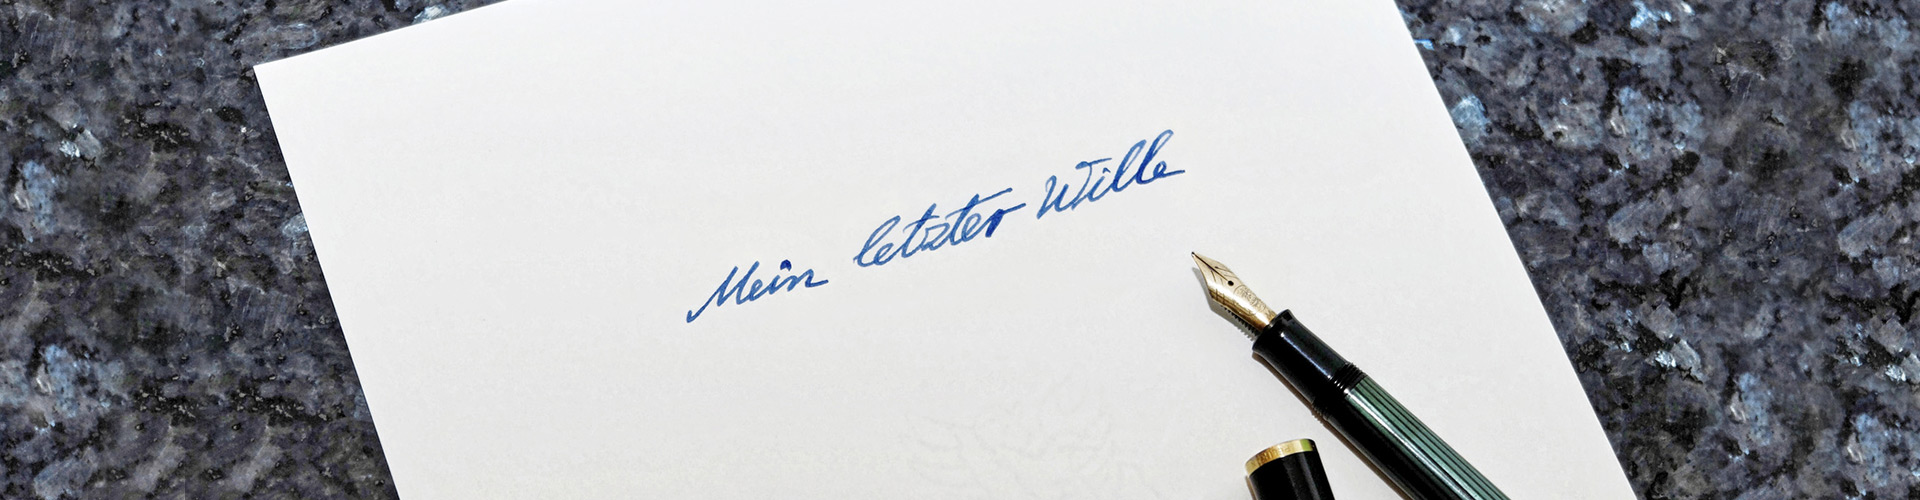 Mein letzter Wille